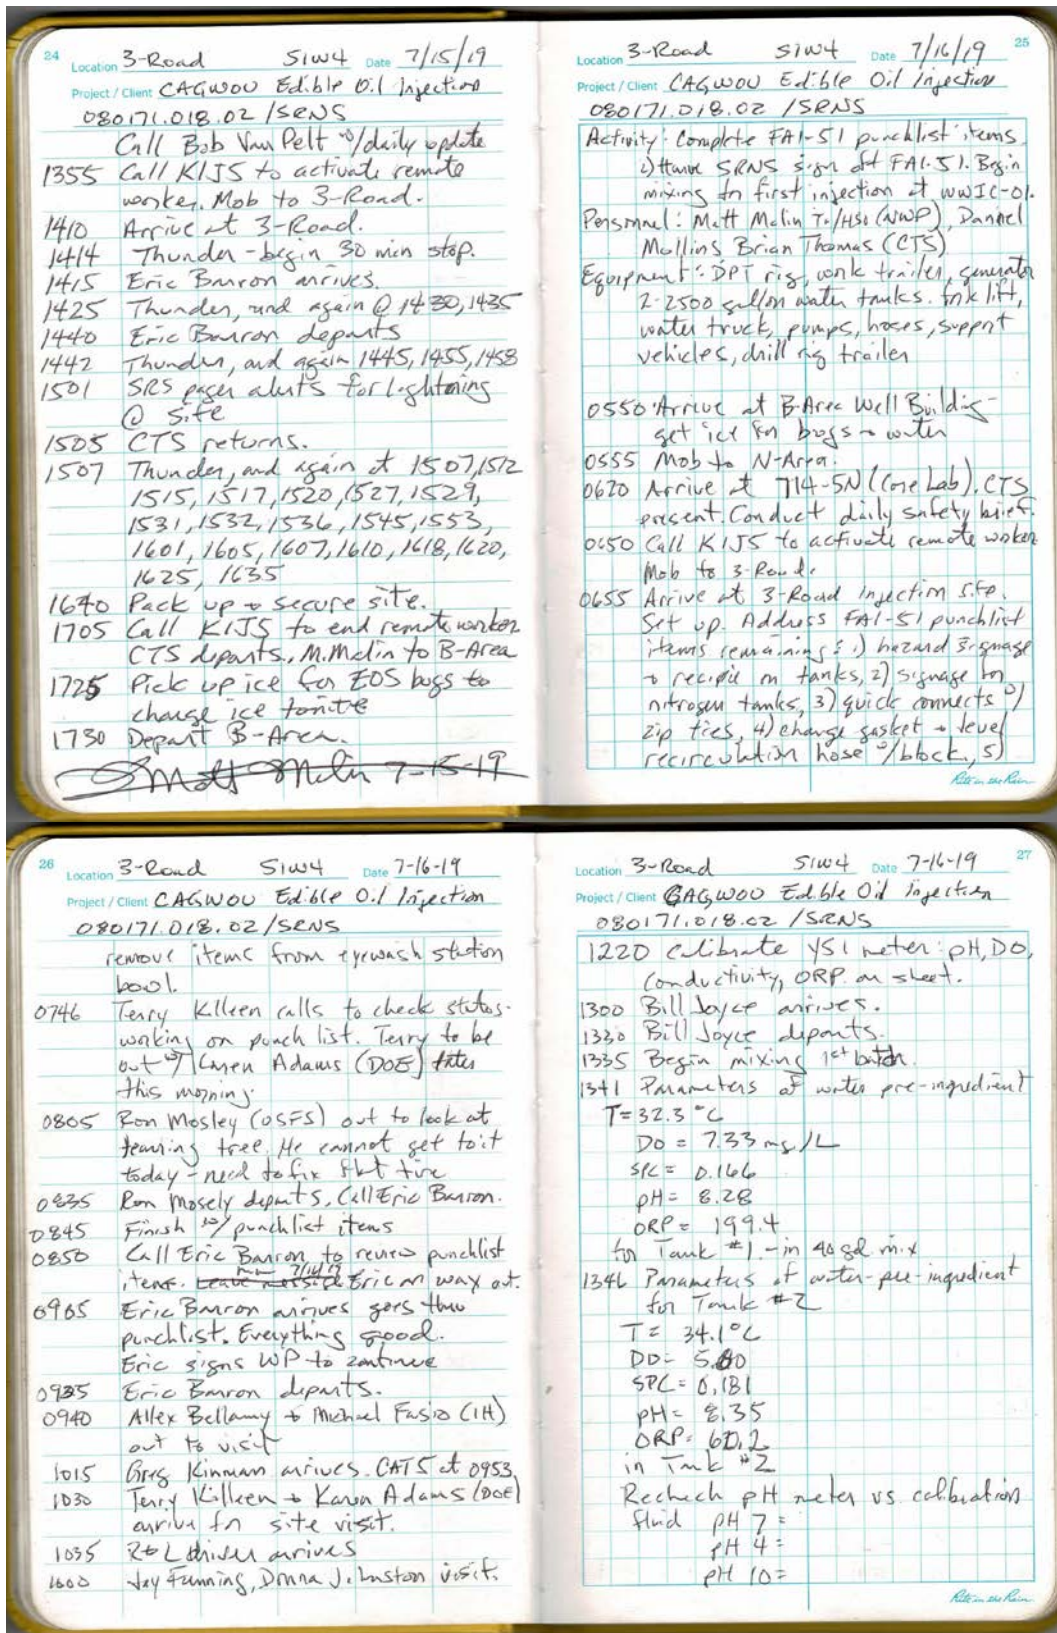 24
Location 3-Road S1W4 Date 7/15/19
Project / Client CAGWOU Edible Oil Injection
080171.018.02 /SRNS
Call Bob Van Pelt w/daily update
1355 Call KIJS to activate remote
worker. Mob to 3-Road.
1410 Arrive at 3-Road.
1414 Thunder - begin 30 min stop.
1415 Eric Barron arrives.
1425 Thunder, and again @ 1430, 1435
1440 Eric Barron departs
1442 Thunder, and again 1445, 1455, 1458
1501 SRS pager alerts for Lightning
@ site
1505 CTS returns.
1507 Thunder, and again at 1507, 1512
1515, 1517, 1520, 1527, 1529,
1531, 1532, 1536, 1545, 1553,
1601, 1605, 1607, 1610, 1618, 1620,
1625, 1635
1640 Pack up + secure site.
1705 Call KIJS to end remote worker
CTS departs., M.Malin to B-Area
1725 Pick up ice for EOS bugs to
change ice tonite
1730 Depart B-Area.
Matt Malin 7-15-19
25
Location 3-Road S1W4 Date 7/16/19
Project / Client CAGWOU Edible Oil Injection
080171.018.02 /SRNS
Activity: Complete FA1-51 punchlist items
SRNS sign off FA1-51. Begin
mixing for first injection at WWIC-01.
Personnel: Matt Malin (NWP), Daniel
Mollins Brian Thomas (CTS)
Equipment: DPT rig, work trailer, generator
2-2500 gallon water tanks. fork lift,
water truck, pumps, hoses, support
vehicles, drill rig trailer
0550 Arrive at B-Area Well Building -
get ice for bugs + water
0555 Mob to N-Area.
0620 Arrive at 714-5N (Core Lab). CTS
present. Conduct daily safety brief.
0650 Call KIJS to activate remote worker
Mob to 3-Road.
0655 Arrive at 3-Road Injection site.
Set up. Address FA1-51 punchlist
items remaining: 1) hazard signage
+ recipie on tanks, 2) signage for
nitrogen tanks, 3) quick connects w/
zip ties, 4) change gasket + level
recirculation hose w/block, 5)
Rite in the Rain
26
Location 3-Road S1W4 Date 7-16-19
Project / Client CAGWOU Edible Oil Injection
080171.018.02 /SRNS
remove items from eyewash station
bowl.
0746 Terry Killeen calls to check status -
working on punch list. Terry to be
out w/ Karen Adams (DOE) later
this morning.
0805 Ron Mosley (OSFS) out to look at
leaning tree. He cannot get to it
today - need to fix flat tire
0835 Ron Mosely departs, Call Eric Barron.
0845 Finish w/ punchlist items
0850 Call Eric Barron to review punchlist
items. Leave message Eric on way out.
0905 Eric Barron arrives goes thru
punchlist. Everything good.
Eric signs WP to continue
0935 Eric Barron departs.
0940 Allex Bellamy + Michael Fusio (IH)
out to visit
1015 Greg Kinman arrives. CATS at 0953
1030 Terry Killeen + Karen Adams (DOE)
arrive for site visit.
1035 R+L driver arrives
Jay Fanning, Donna Johnston visit.
27
Location 3-Road S1W4 Date 7-16-19
Project / Client CAGWOU Edible Oil Injection
080171.018.02 /SRNS
1220 Calibrate YSI meter: pH, DO,
conductivity, ORP. on sheet.
1300 Bill Joyce arrives.
1330 Bill Joyce departs.
1335 Begin mixing 1st batch.
1341 Parameters of water pre-ingredient
T=32.3 °C
DO = 7.33 mg/L
SPC = 0.166
pH = 8.28
ORP = 199.4
for Tank #1 - in 40 gal mix
1346 Parameters of water-pre-ingredient
for Tank #2
T = 34.1°C
DO = 5.80
SPC = 0.181
pH = 8.35
ORP = 60.2
in Tank #2
Recheck pH meter vs calibration
fluid pH 7 =
pH 4 =
pH 10 =
Rite in the Rain